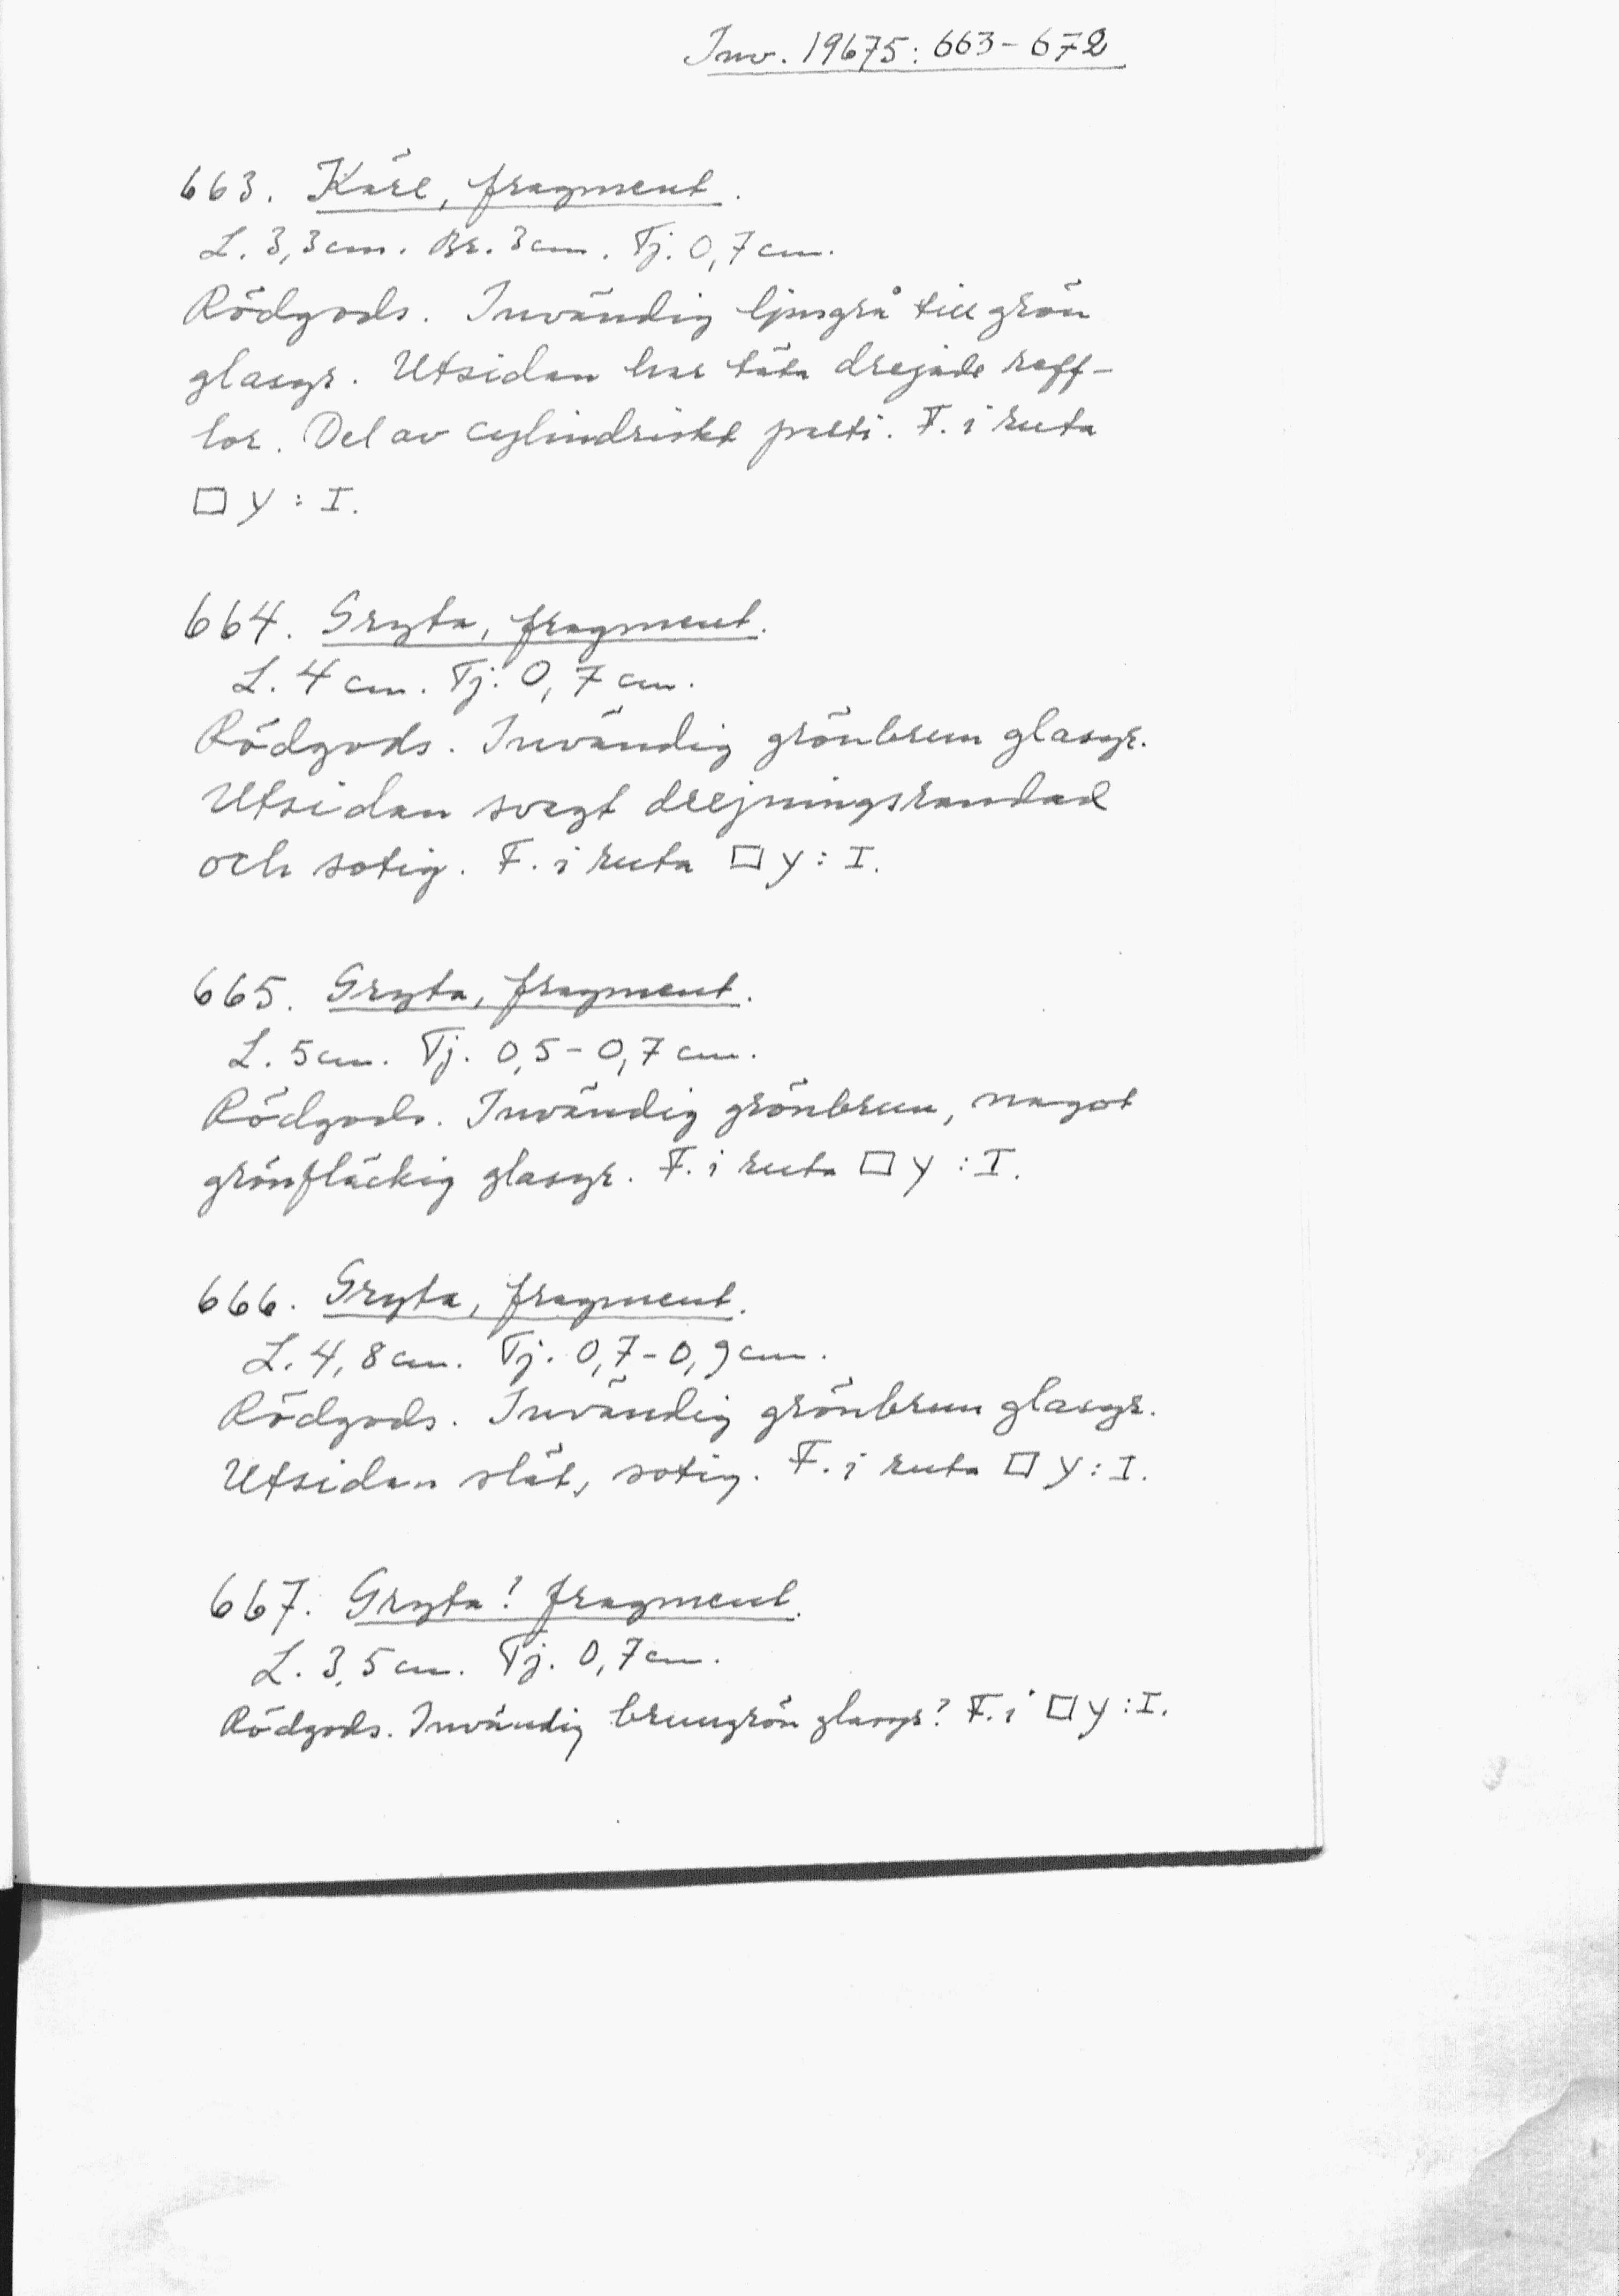 Inv. 19675: 663-672
663. Kärl, fragment.
L. 3,3 cm. Br. 3 cm. Tj. 0,7 cm.
Rödgods. Invändig ljusgrå till grön
glasyr. Utsidan har täta drejade reff-
lor. Del av cylindriskt parti. F. i ruta
□ Y : I.
664. Gryta, fragment.
L. 4 cm. Tj. 0,7 cm.
Rödgods. Invändig grönbrun glasyr.
Utsidan svagt drejningsrandad
och sotig. F. i ruta □ Y : I.
665. Gryta, fragment.
L. 5 cm. Tj. 0,5-0,7 cm.
Rödgods. Invändig grönbrun, nagot
grönfläckig glasyr. F. i ruta □ Y : I.
666. Gryta, fragment.
L. 4,8 cm. Tj. 0,7-0,9 cm.
Rödgods. Invändig grönbrun glasyr.
Utsidan slät, sotig. F. i ruta □ Y : I.
667. Gryta? fragment.
L. 3,5 cm. Tj. 0,7 cm.
Rödgods. Invändig brungrön glasyr? F. i □ Y : I.